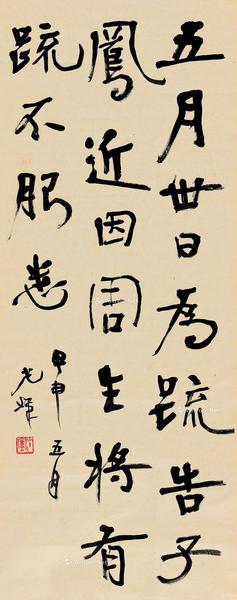 五月卅日為疏告子
鳳近因周生將有
疏不服悉
甲申五月
光輝